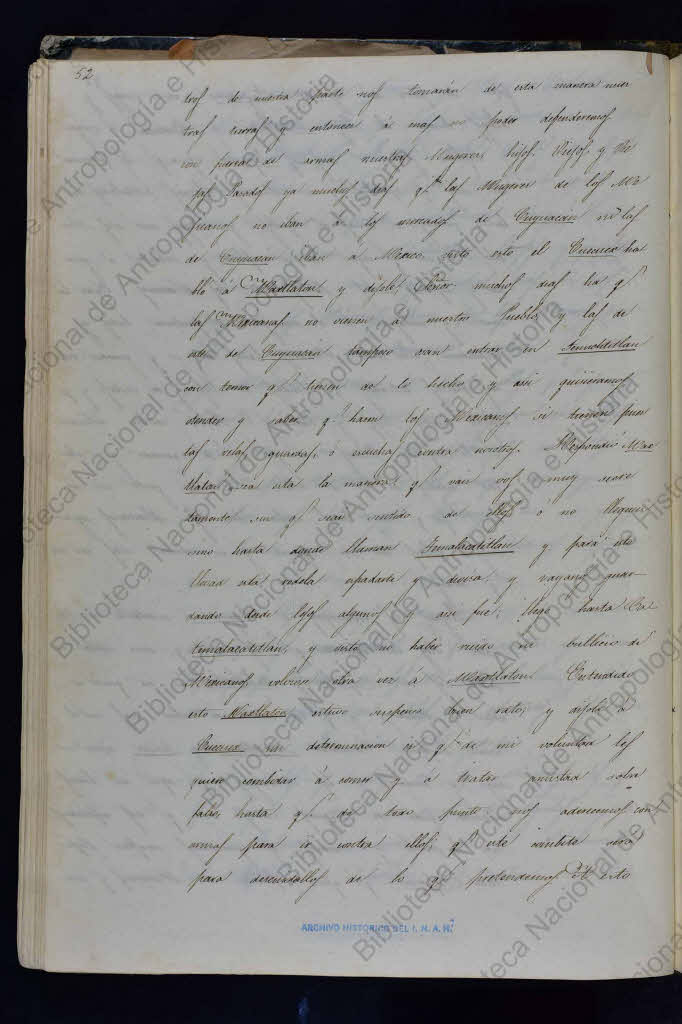 52
tros de nuestra parte nos tomarán de esta manera nues
tras tierras y entonces á mas no poder defenderemos
con fuerzas de armas nuestras Mugeres, hijos, Viejos, y Vie
jas. Pasados ya muchos dias q.e las Mugeres de los Me
jicanos no iban á los mercados de Cuyuacan ni los
de Cuyuacan iban á Mexico, visto esto el Cuecuex ha
bló á Maxtlaton, y dijole; Señor muchos dias ha q.e
las Mexicanas no vienen á nuestro Pueblo, y las de
este de Cuyuacan tampoco osan entrar en Tenuchtitlan
con temor q.e tienen de lo hecho, y asi quisieramos
entender y saber q.e hacen los Mexicanos si tienen pues
tas velas, guardas, ó escucha contra nosotros. Respondió Max
tlaton, sea esta la manera q.e van muy secre
tamente sin q.e sean sentidos de ellos ó no lleguen
sino hasta donde llaman Temalacatitlan y para esto
llevad esta rodela espadarte y divisa, y vayan guar
dando desde lejos algunos y asi fué; llegó hasta Tal
temalacatitlan, y visto no haber ruido ni bullicio de
Mexicanos volvióse otra vez á Maxtlaton. Entendido
esto Maxtlaton estuvo suspenso buen rato; y dijole á
Cuecuex mi determinacion es q.e de mi voluntad los
quiero combidar á comer y á tratar amistad sobre
falso, hasta q.e de todo punto nos aderecemos con
armas para ir contra ellos, q.e este combite será
para descuidallos de lo q.e pretendemos. A esto
ARCHIVO HISTORICO DEL I. N. A. H.
Biblioteca Nacional de Antropología e Historia